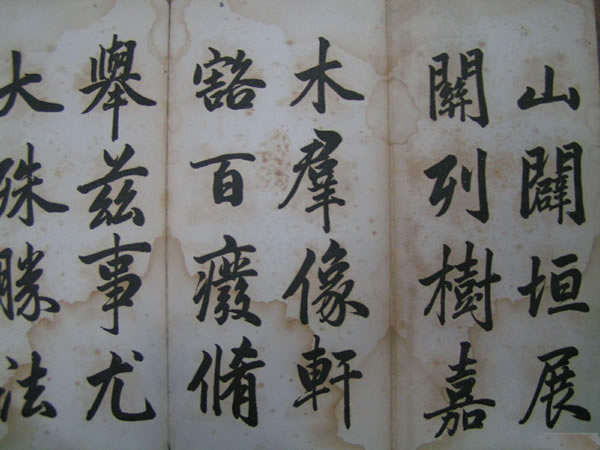 山闢垣展
關列樹嘉
木羣像軒
豁百癈脩
舉茲事尤
大殊勝法